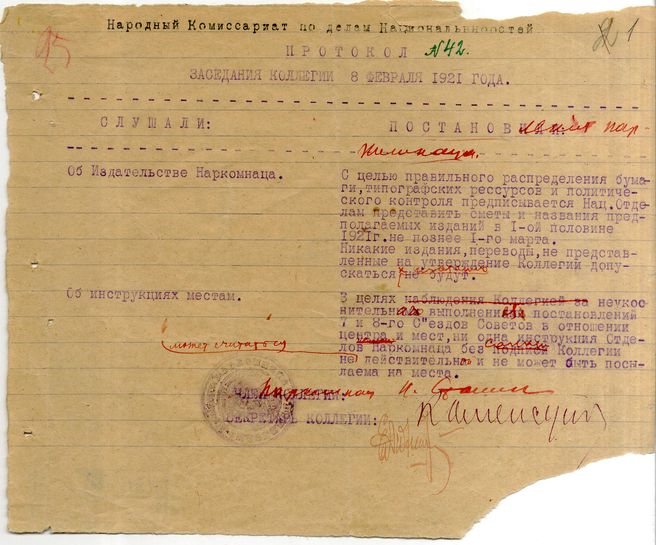 Народный Комиссариат по делам Национальностей
95
21
ПРОТОКОЛ №42.
ЗАСЕДАНИЯ КОЛЛЕГИИ 8 ФЕВРАЛЯ 1921 ГОДА.
СЛУШАЛИ:
ПОСТАНОВ
Об Издательстве Наркомнаца.
С целью правильного распределения бума-
ги, типографских рессурсов и политиче-
ского контроля предписывается Нац.Отде-
лам представить сметы и названия пред-
полагаемых изданий в I-ой половине
1921г. не познее I-го марта.
Никакие издания, переводы, не представ-
ленные на утверждение Коллегии допу-
скаться не будут.
к печатанию
Об инструкциях местам.
В целях наблюдения Коллегией за неукос-
нительн выполнени постановлений
7 и 8-го С"ездов Советов в отношении
центра и мест, ни одна инструкция Отде-
(может считаться
лов Наркомнаца без подписи Коллегии
не действительна и не может быть посы-
лаема на места.
Нарком И. Сталин
ЧЛЕН КОЛЛЕГИИ:
СЕКРЕТАРЬ КОЛЛЕГИИ: